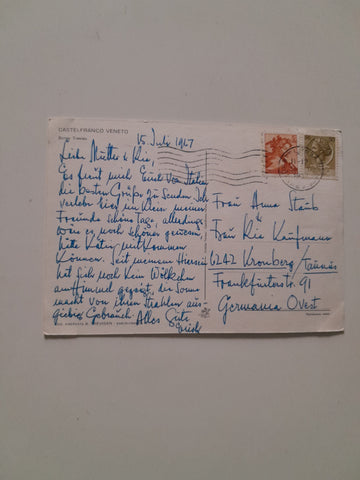 CASTELFRANCO VENETO
15. Juli 1967
Liebe Mutter & Rie,
Es freut mich Euch von Italien
die besten Grüße zu senden. Ich
verlebe hier im Kreise meiner
Freunde schöne Tage, allerdings
wäre es noch schöner gewesen
hätte Käte mitkommen
können. Seit meinem Hiersein
hat sich noch kein Wölkchen
am Himmel gezeigt, die Sonne
macht von ihren Strahlen aus-
giebig Gebrauch. Alles Gute
Frau Anna Staub
&
Frau Rie Kaufmann
6242 Kronberg/Taunus
Frankfurterstr. 91
Germania Ovest